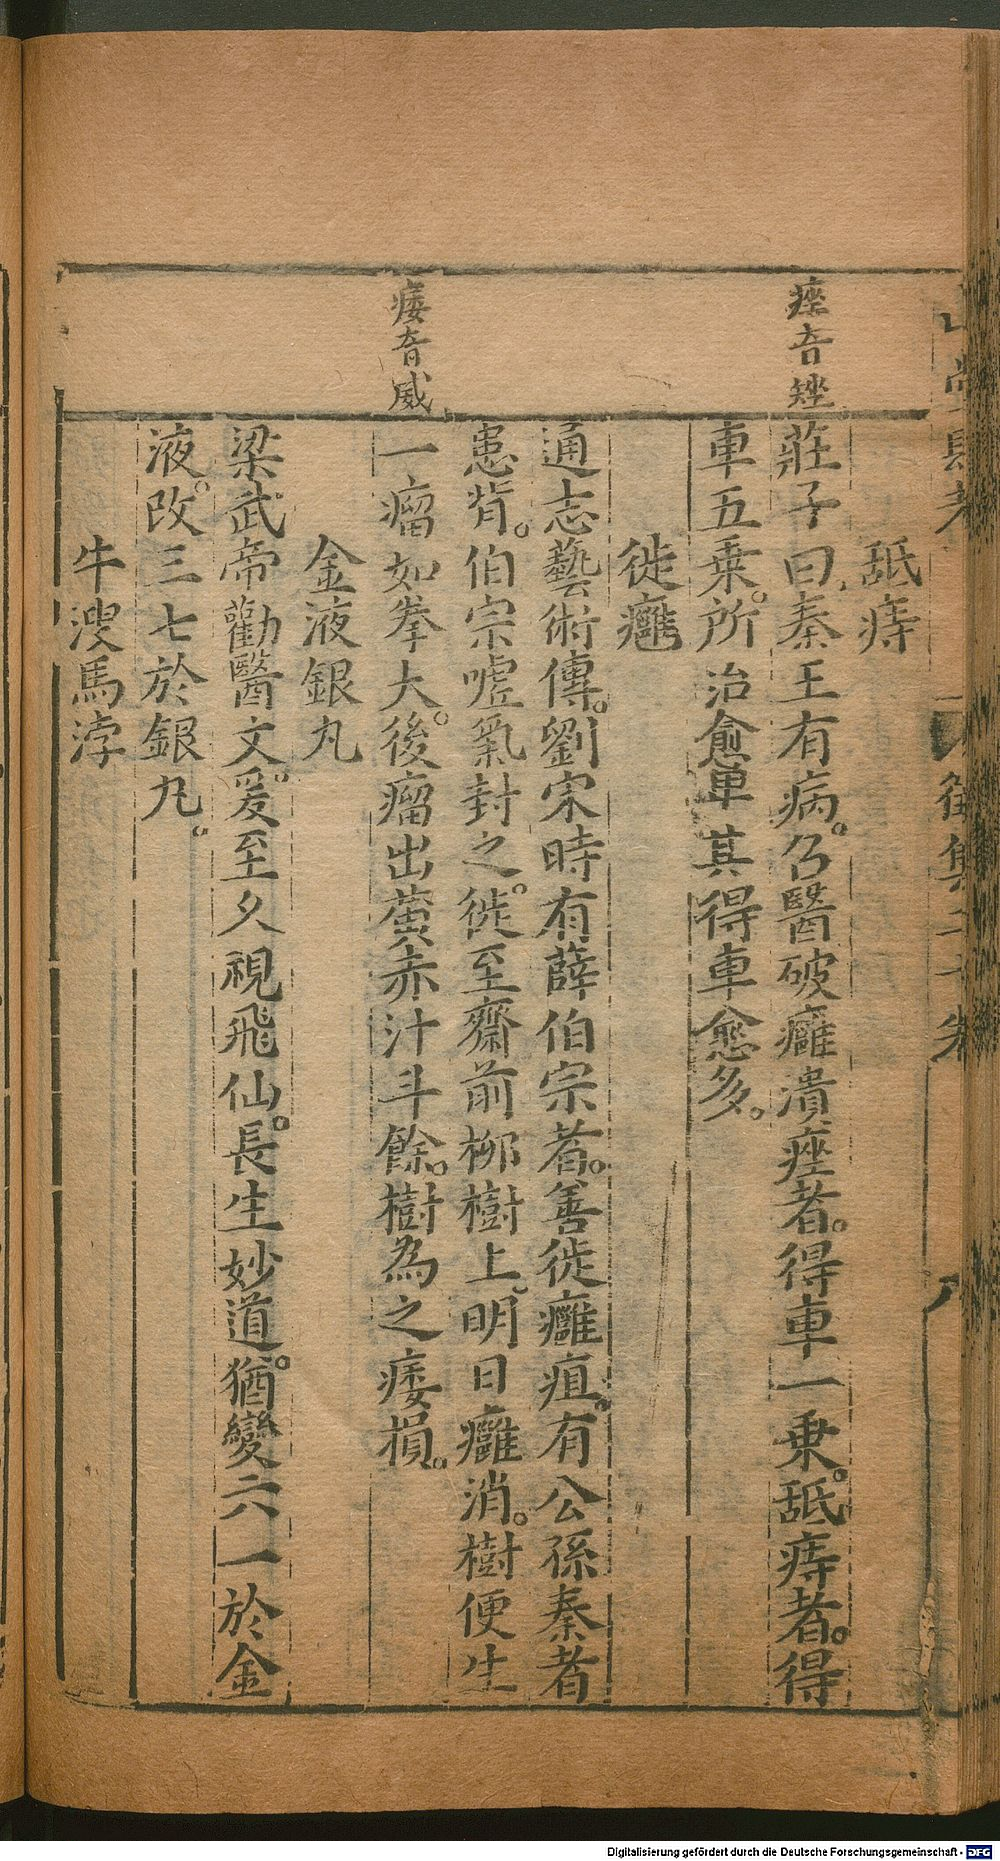 舐痔
痤音矬
莊子曰秦王有病。召醫破癰潰痤者。得車一乗。舐痔者。得
車五乗。所治愈卑其得車愈多。
徙癰
通志藝術傳。劉宋時有薛伯宗者。善徙癰疽。有公孫秦者
患背。伯宗嘘氣封之。徙至齋前柳樹上。明日癰消。樹便生
痿音威
一瘤如拳大。後瘤出黄赤汁斗餘。樹為之痿損。
金液銀丸
梁武帝勸醫文。爰至久視飛仙。長生妙道。猶變六一於金
液。改三七於銀丸。
牛溲馬浡
Digitalisierung gefördert durch die Deutsche Forschungsgemeinschaft - DFG